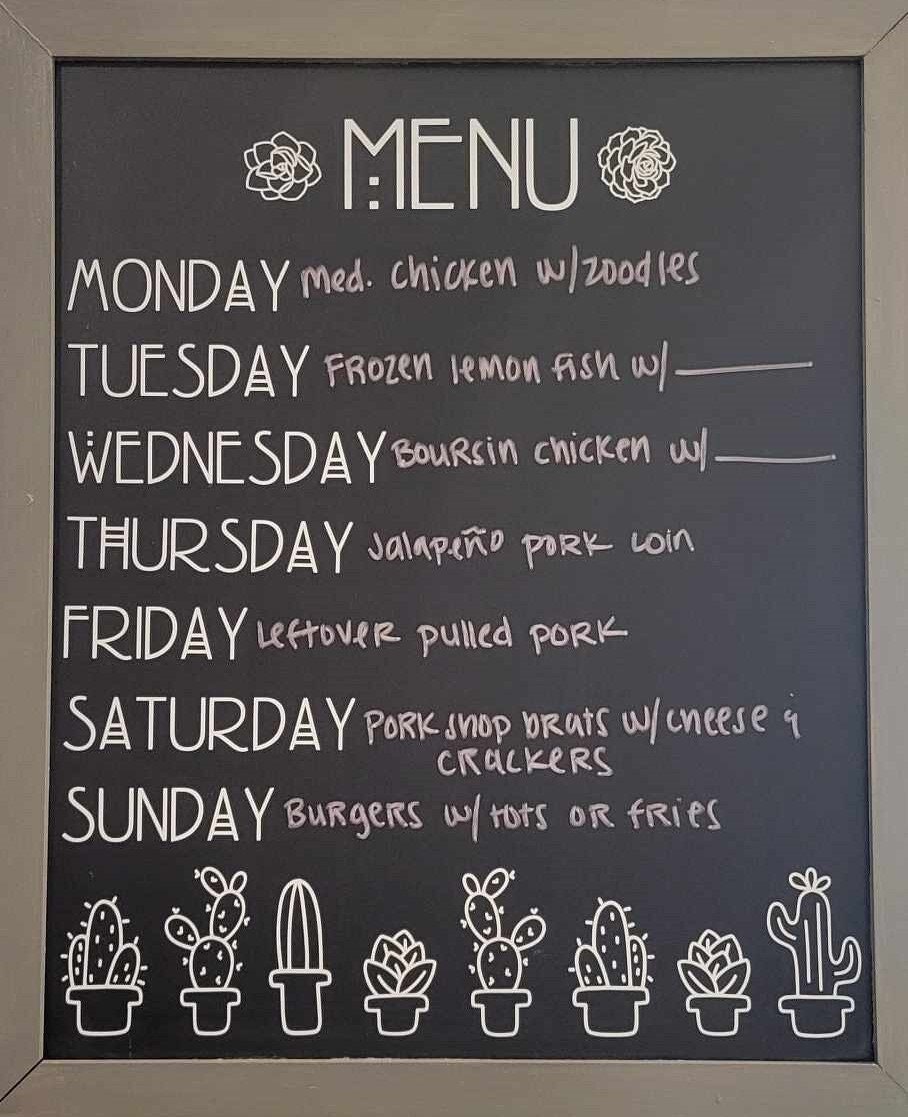 MENU
MONDAY Med. chicken w/zoodles
TUESDAY Frozen lemon fish w/ ______
WEDNESDAY Boursin chicken w/ ______
THURSDAY Jalapeño pork loin
FRIDAY Leftover pulled pork
SATURDAY Pork shop brats w/cheese &
crackers
SUNDAY Burgers w/ tots or fries